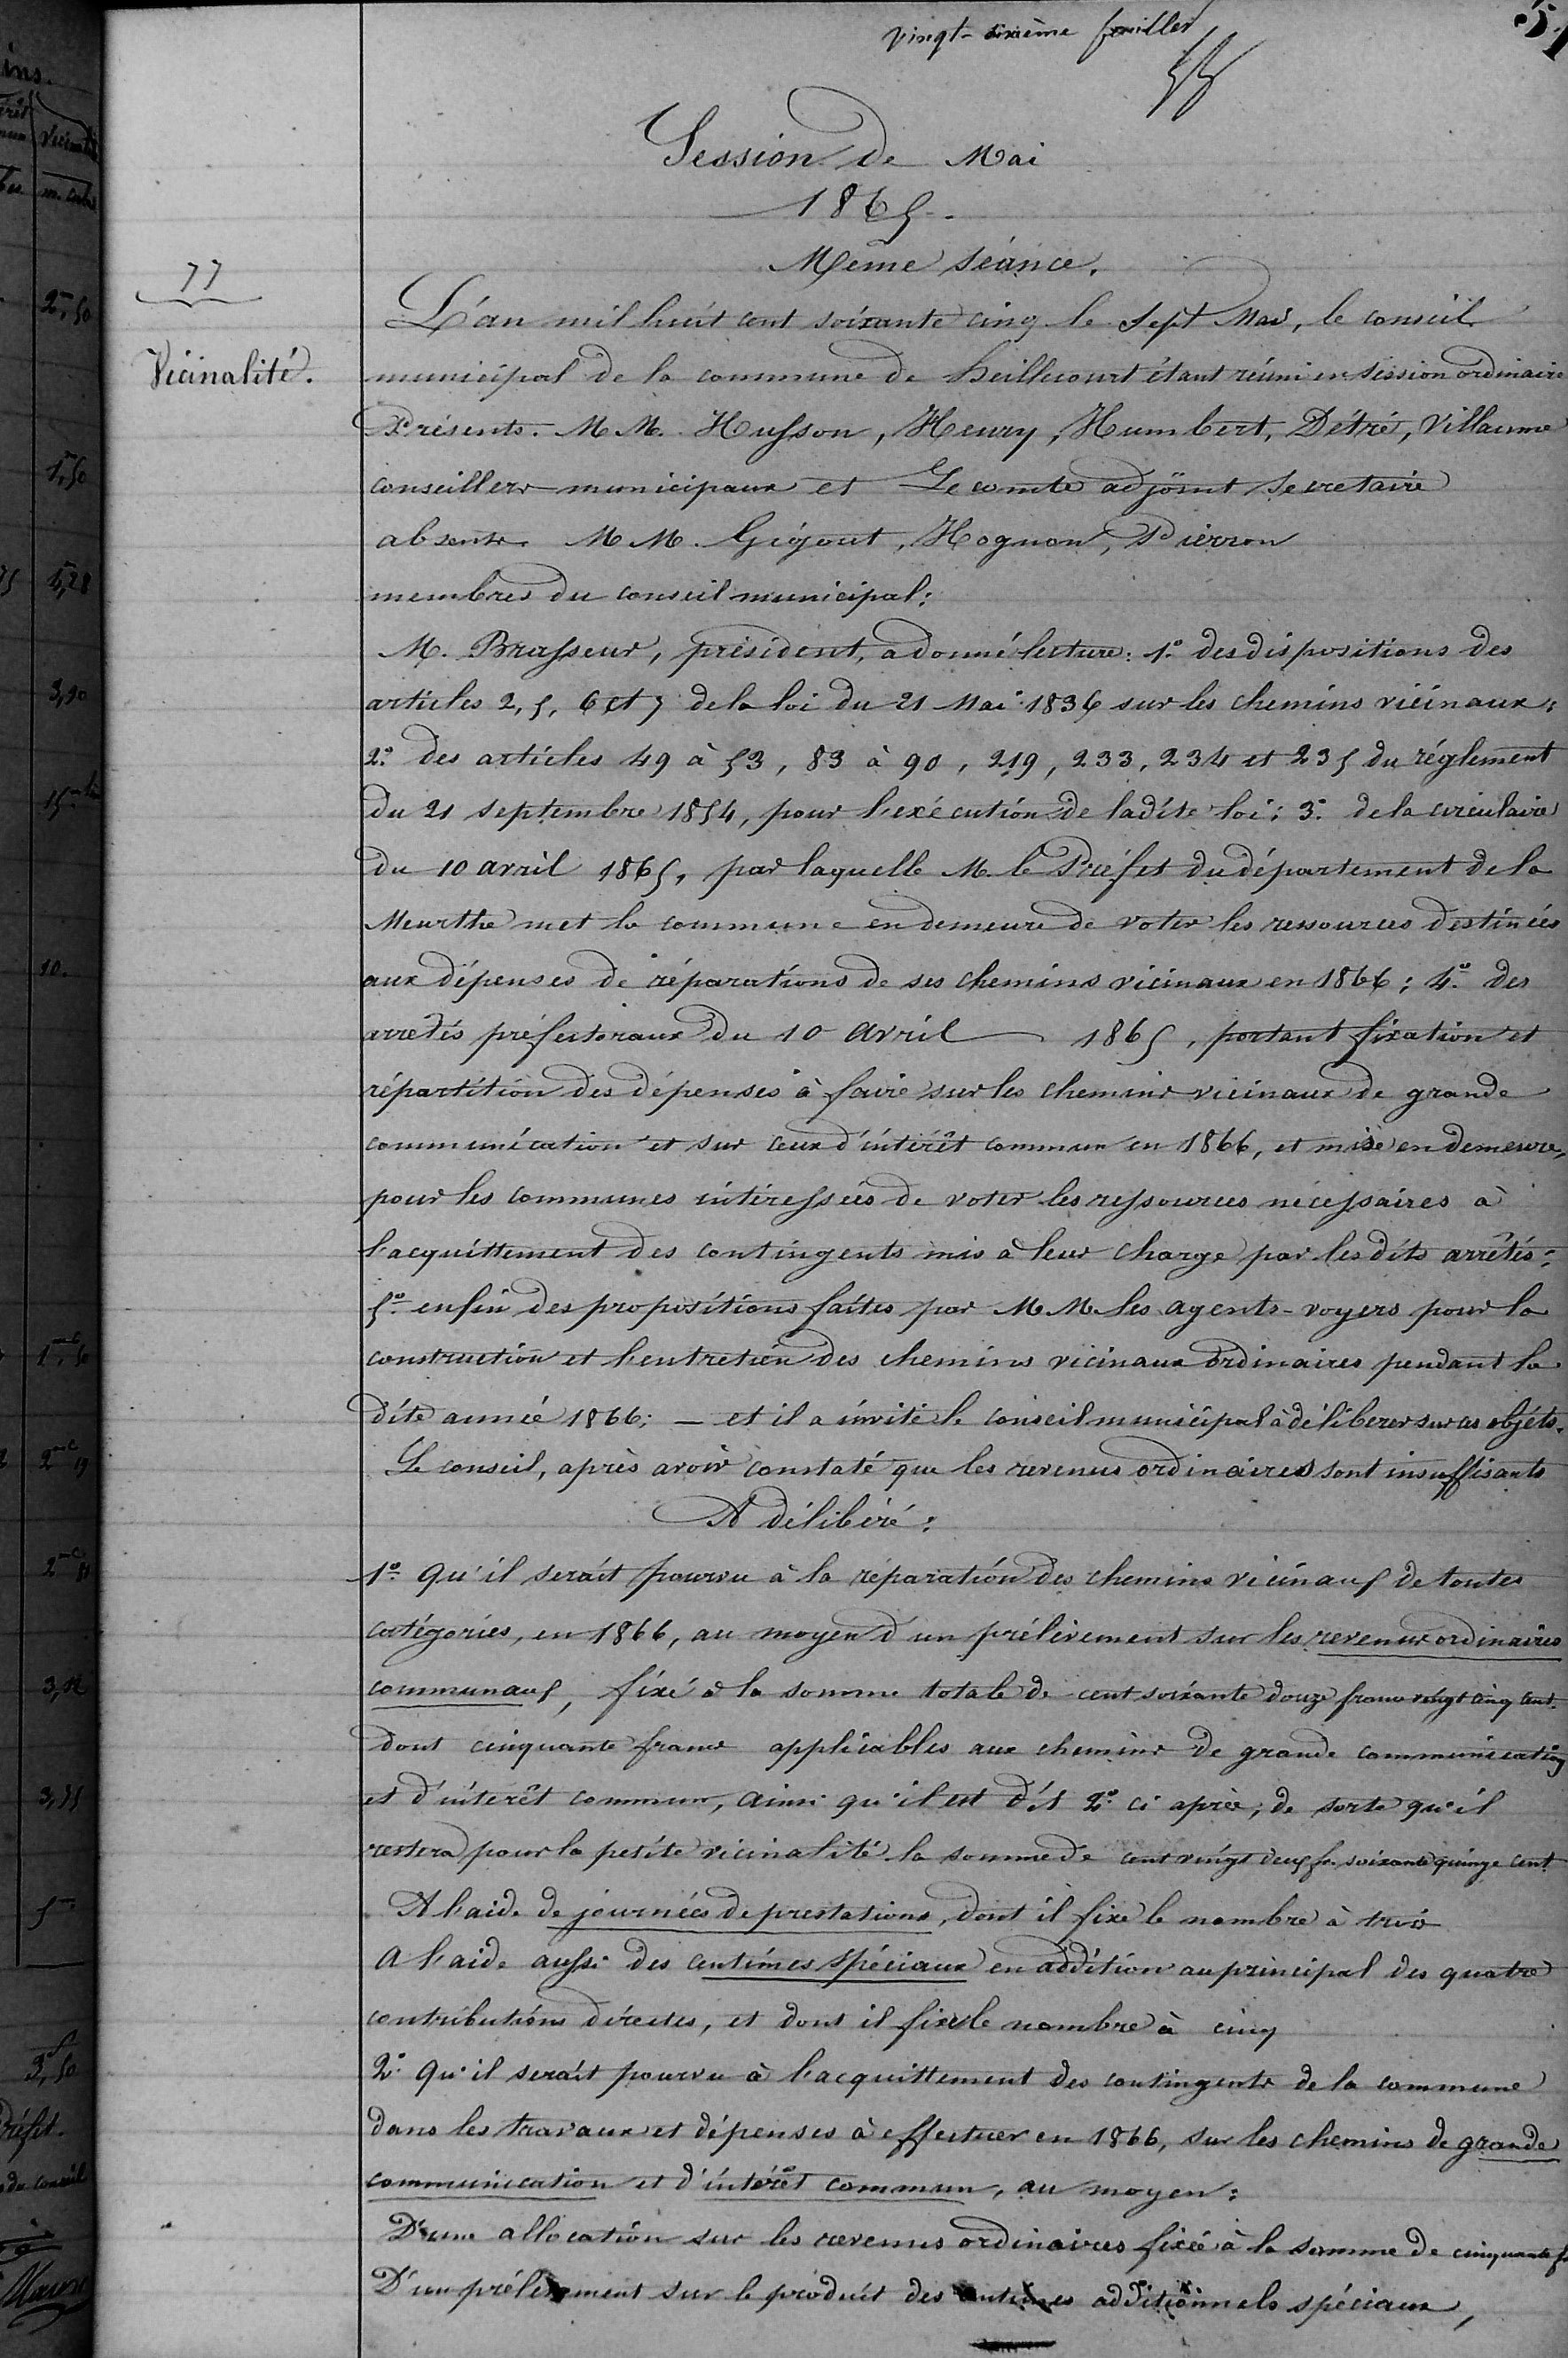 vingt-sixième feuillet
51
Session de Mai
1865.
Même séance.
77
Vicinalité.
L'an mil huit cent soixante cinq le sept Mai, le conseil
municipal de la commune de heillecourt étant réuni en session ordinaire
Présents. M M. Husson, Henry, Humbert, Détré, Villaume
conseillers municipaux et Lecomte adjoint secretaire
absents M M. Gigout, Hognon, Pierron
membres du conseil municipal:
M. Brasseur, président, a donné lecture: 1º des dispositions des
articles 2, 5, 6 et 7 de la loi du 21 Mai 1836 sur les chemins vicinaux;
2º des articles 49 à 53, 83 à 90, 219, 233, 234 et 235 du réglement
du 21 septembre 1854, pour l'exécution de ladite loi; 3º de la circulaire
du 10 avril 1865, par laquelle M. le Préfet du département de la
Meurthe met la commune en demeure de voter les ressources destinées
aux dépenses de réparations de ses chemins vicinaux en 1866; 4º des
arretés préfectoraux du 10 Avril 1865, portant fixation et
répartition des dépenses à faire sur les chemins vicinaux de grande
communication et sur ceux d'intérêt commun en 1866, et mise en demeure,
pour les communes intéressées de voter les ressources nécessaires à
l'acquittement des contingents mis à leur charge par les dits arrêtés;
5º enfin des propositions faites par M M. les agents-voyers pour la
construction et l'entretien des chemins vicinaux ordinaires pendant la
dite année 1866; — et il a invité le conseil municipal à déliberer sur ces objéts.
Le conseil, après avoir constaté que les revenus ordinaires sont insuffisants
A délibéré:
1º Qu'il serait pourvu à la réparation des chemins vicinaux de toutes
catégories, en 1866, au moyen d'un prélèvement sur les revenus ordinaires
communaux, fixé à la somme totale de cent soixante douze francs vingt cinq cent.
dont cinquante francs applicables aux chemins de grande communication
et d'intérêt commun, ainsi qu'il est dit 2º ci après; de sorte qu'il
restera pour la petite vicinalité la somme de cent vingt deux fr. soixante quinze cent
A l'aide de journées de prestations, dont il fixe le nombre à trois
A l'aide aussi des centimes spéciaux en addition au principal des quatre
contributions directes, et dont il fixe le nombre à cinq
2º Qu'il serait pourvu à l'acquittement des contingents de la commune
dans les travaux et dépenses à effectuer en 1866, sur les chemins de grande
communication et d'intérêt commun, au moyen:
D'une allocation sur les revenus ordinaires fixée à la somme de cinquante f
D'un prélèvement sur le produit des centimes additionnels spéciaux,